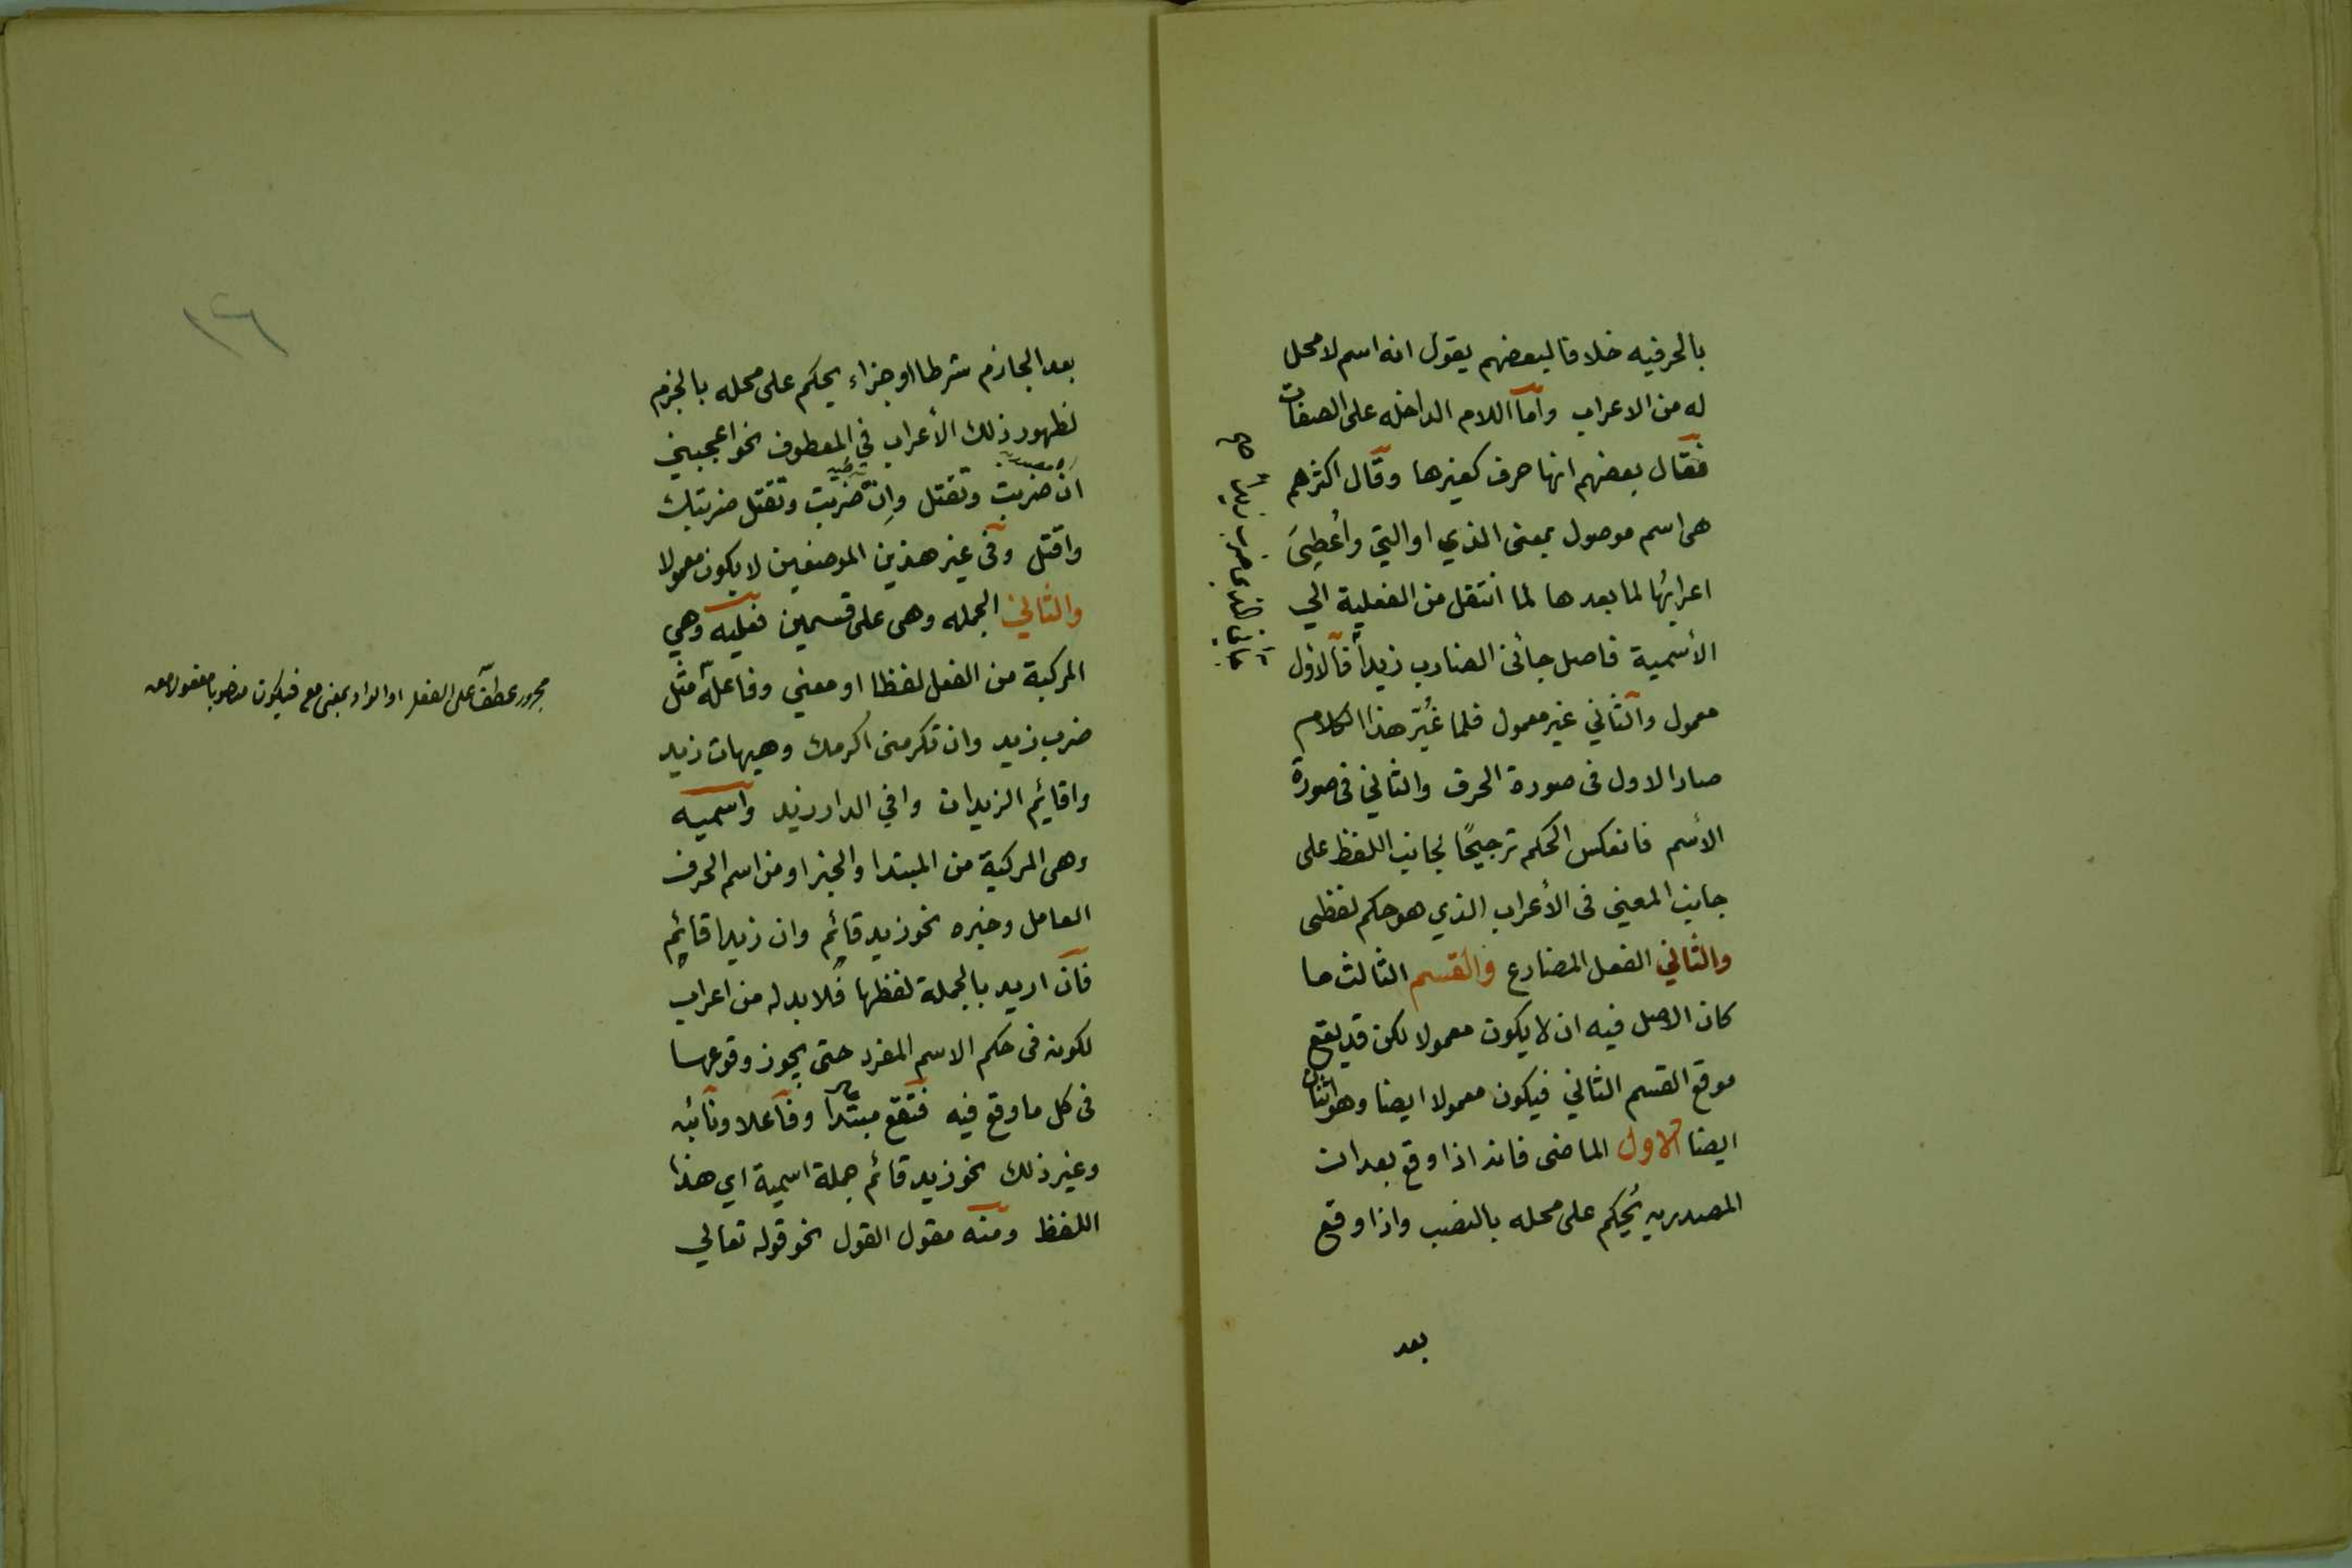 بالحرفيه خلافا لبعضهم يقول انه اسم لا محل
له من الاعراب واما اللام الداخله على الصفات
فقال بعضهم انها حرف كغيرها وقال اكثرهم
هى اسم موصول بمعنى الذي او التي وأُعطِيَ
اعرابُها لما بعدها لما انتقل من الفعلية الي
الأسمية فاصل جائنى الضارب زيداً فالاول
معمول والثاني غير معمول فلما غُيّر هذا الكلام
صار الاول فى صورة الحرف والثاني فى صورة
الأسم فانعكس الحكم ترجيحًا لجانب اللفظ على
جانب المعني فى الأعراب الذي هو حكم لفظى
والثاني الفعل المضارع والقسم الثالث ما
كان الاصل فيه ان لا يكون معمولا لكن قد يقع
موقع القسم الثاني فيكون معمولا ايضا وهو اثنان
ايضا الاول الماضى فانه اذا وقع بعد ان
المصدريه يُحكم على محله بالنصب واذا وقع
بعد
جائنى الذى ضرب زيدا صح
بعد الجازم شرطا او جزاء يحكم على محله بالجزم
لظهور ذلك الأعراب في المعطوف نحو اعجبني
ان ضربت وتقتل وان ضربت وتقتل ضربتك
واقتل وفى غير هذين الموضعين لا يكون معمولا
والثاني الجمله وهى على قسمين فعليه وهي
المركبة من الفعل لفظا او معني وفاعله مثل
ضرب زيد وان تكرمنى اكرمك وهيهات زيد
واقائم الزيدان وافي الدار زيد واسميه
وهى المركبة من المبتدا والخبر او من اسم الحرف
العامل وخبره نحو زيد قائم وان زيدا قائم
فان اريد بالجملة لفظها فلا بد له من اعراب
لكونه فى حكم الاسم المفرد حتى يجوز وقوعها
فى كل ما وقع فيه فتقع مبتدا وفاعلا ونائبه
وغير ذلك نحو زيد قائم جملة اسمية اي هذا
اللفظ ومنه مقول القول نحو قوله تعالي
مجرور عطف على الفعل او الواو بمعنى مع فيكون منصوبا مفعولا معه
١٢٦